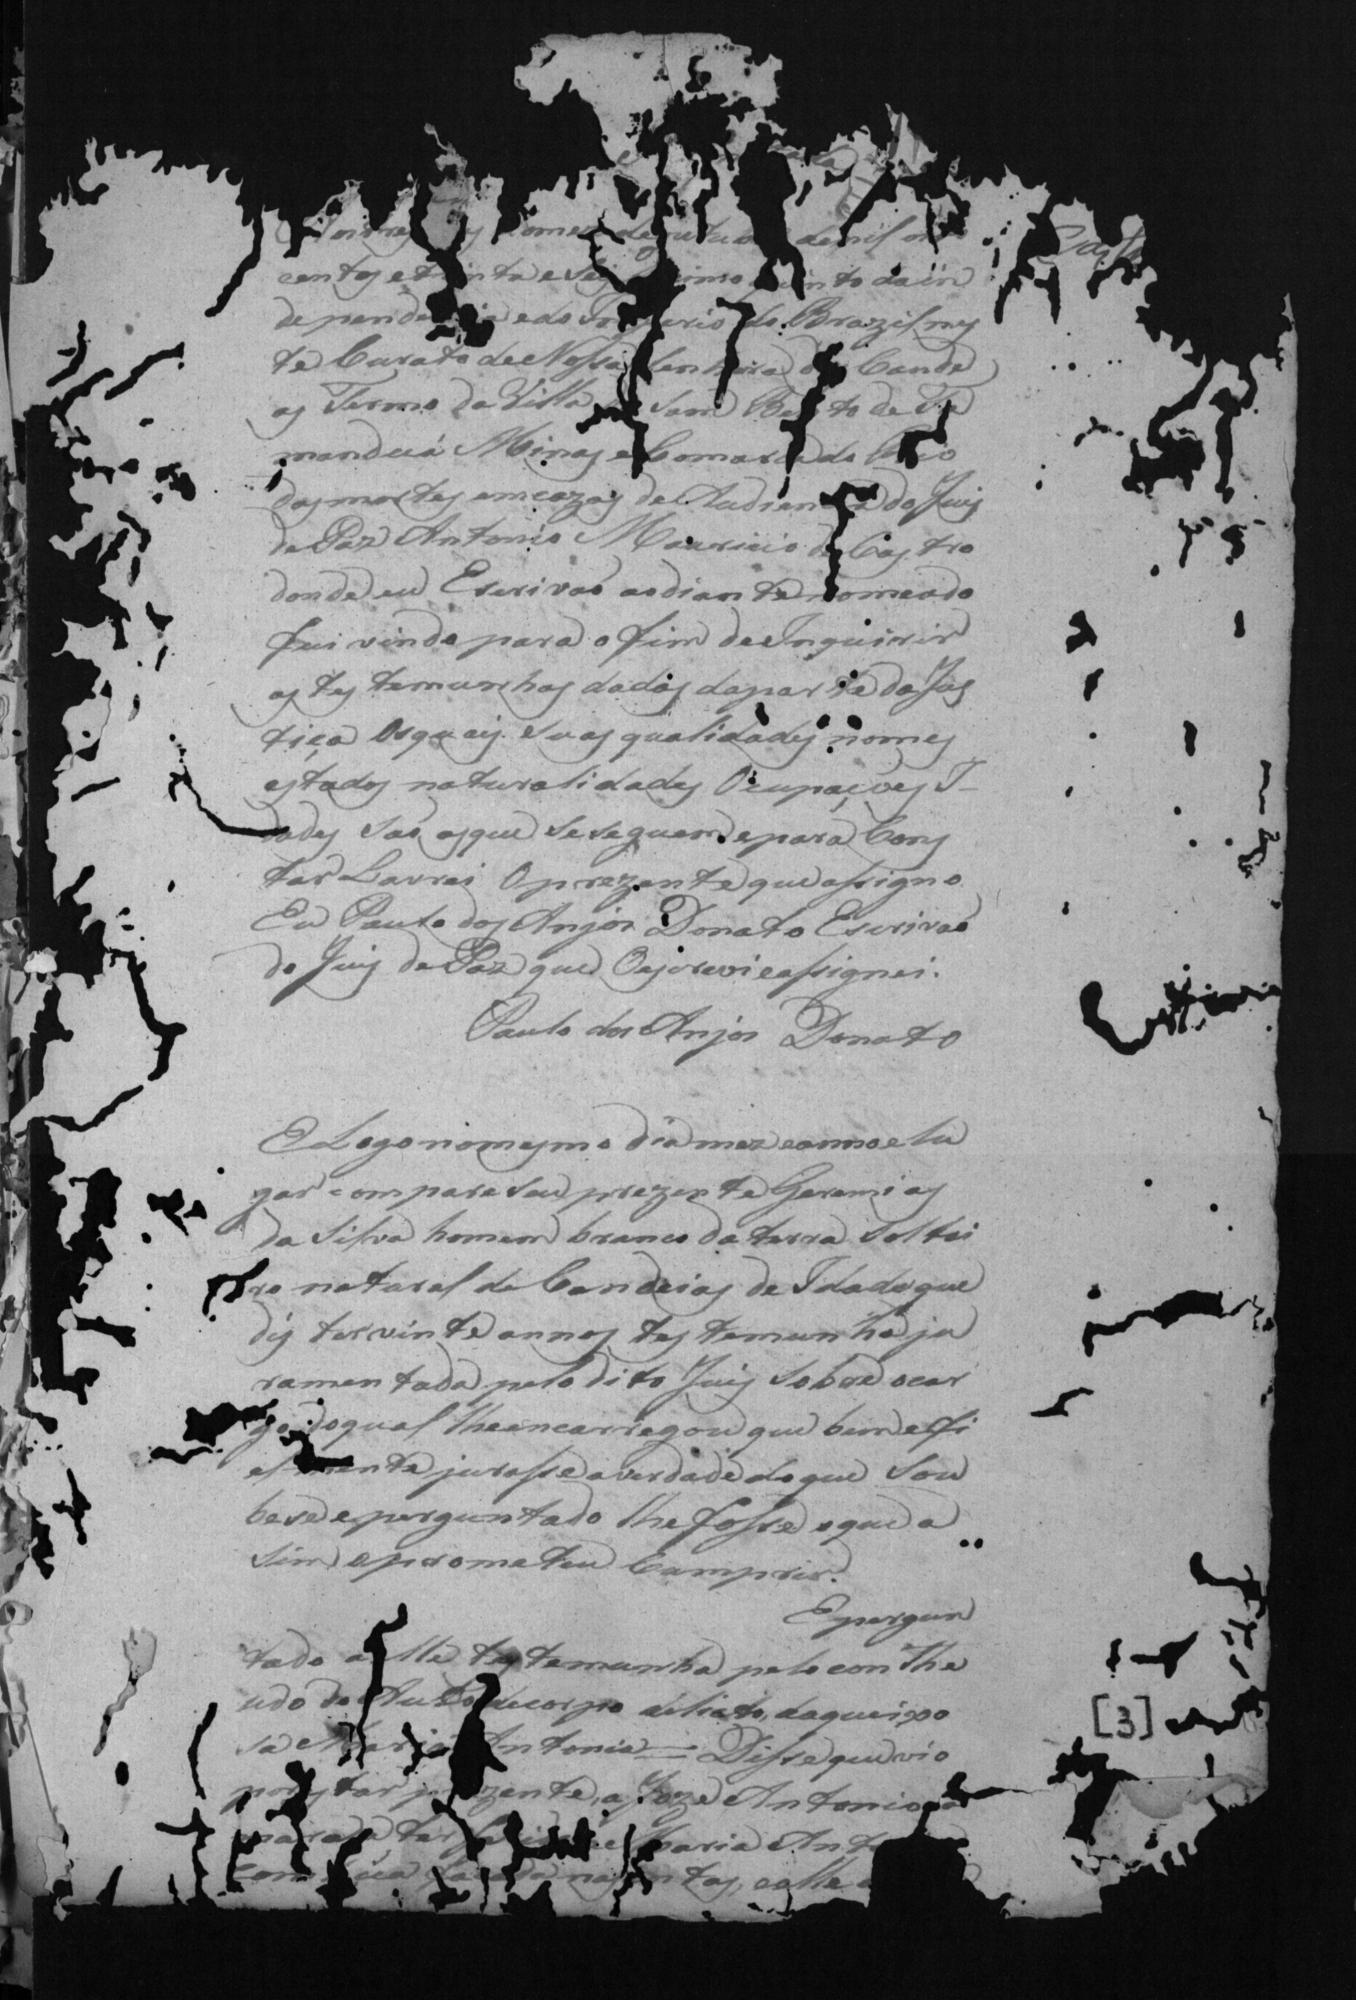 mez de outubro de mil oito
centos e trinta e seis Decimo quinto da in
dependencia e do Imperio do Brazil nes
te Curato de Nossa Senhora das Cande
as Termo da Villa de Sam Bento de Ta
manduá Minas e Comarca do Rio
das mortes em cazas de Audiencia do Juis
de Paz Antonio Mauricio de Castro
donde eu Escrivaõ ao diante nomeado
fui vindo para o fim de Inquirir
as testemunhas dadas da parte da Jus
tiça Os quais e suas qualidades nomes
estados naturalidades Ocupações I-
dades saõ as que se seguem e para Cons
tar Lavrei O prezente que assigno
Eu Paulo dos Anjos Donato Escrivaõ
do Juis de Paz que O escrevi e assignei.
Paulo dos Anjos Donato
E Logo no mesmo dia mez e anno e lu
gar compareseu prezente Geremias
da Silva homem branco da terra soltei
ro natural de Candeias de Idade que
dis ter vinte annos testemunha ju
ramentada pelo dito Juis sobre o car
go do qual lhe encarregou que bem e fi
elmente jurasse a verdade do que sou
bese e perguntado lhe fosse o que a
sim o prometeu Cumprir.
E pergun
tado a elle testemunha pelo conthe
udo do Auto de corpo delicto, da queixo
sa Maria Antonia = Disse que vio
por estar prezente, a Joze Antonio
Maria
[3]